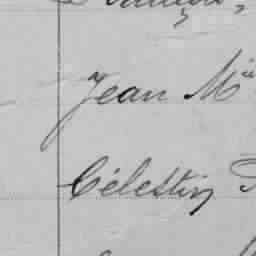 Jean Mie
Célestin